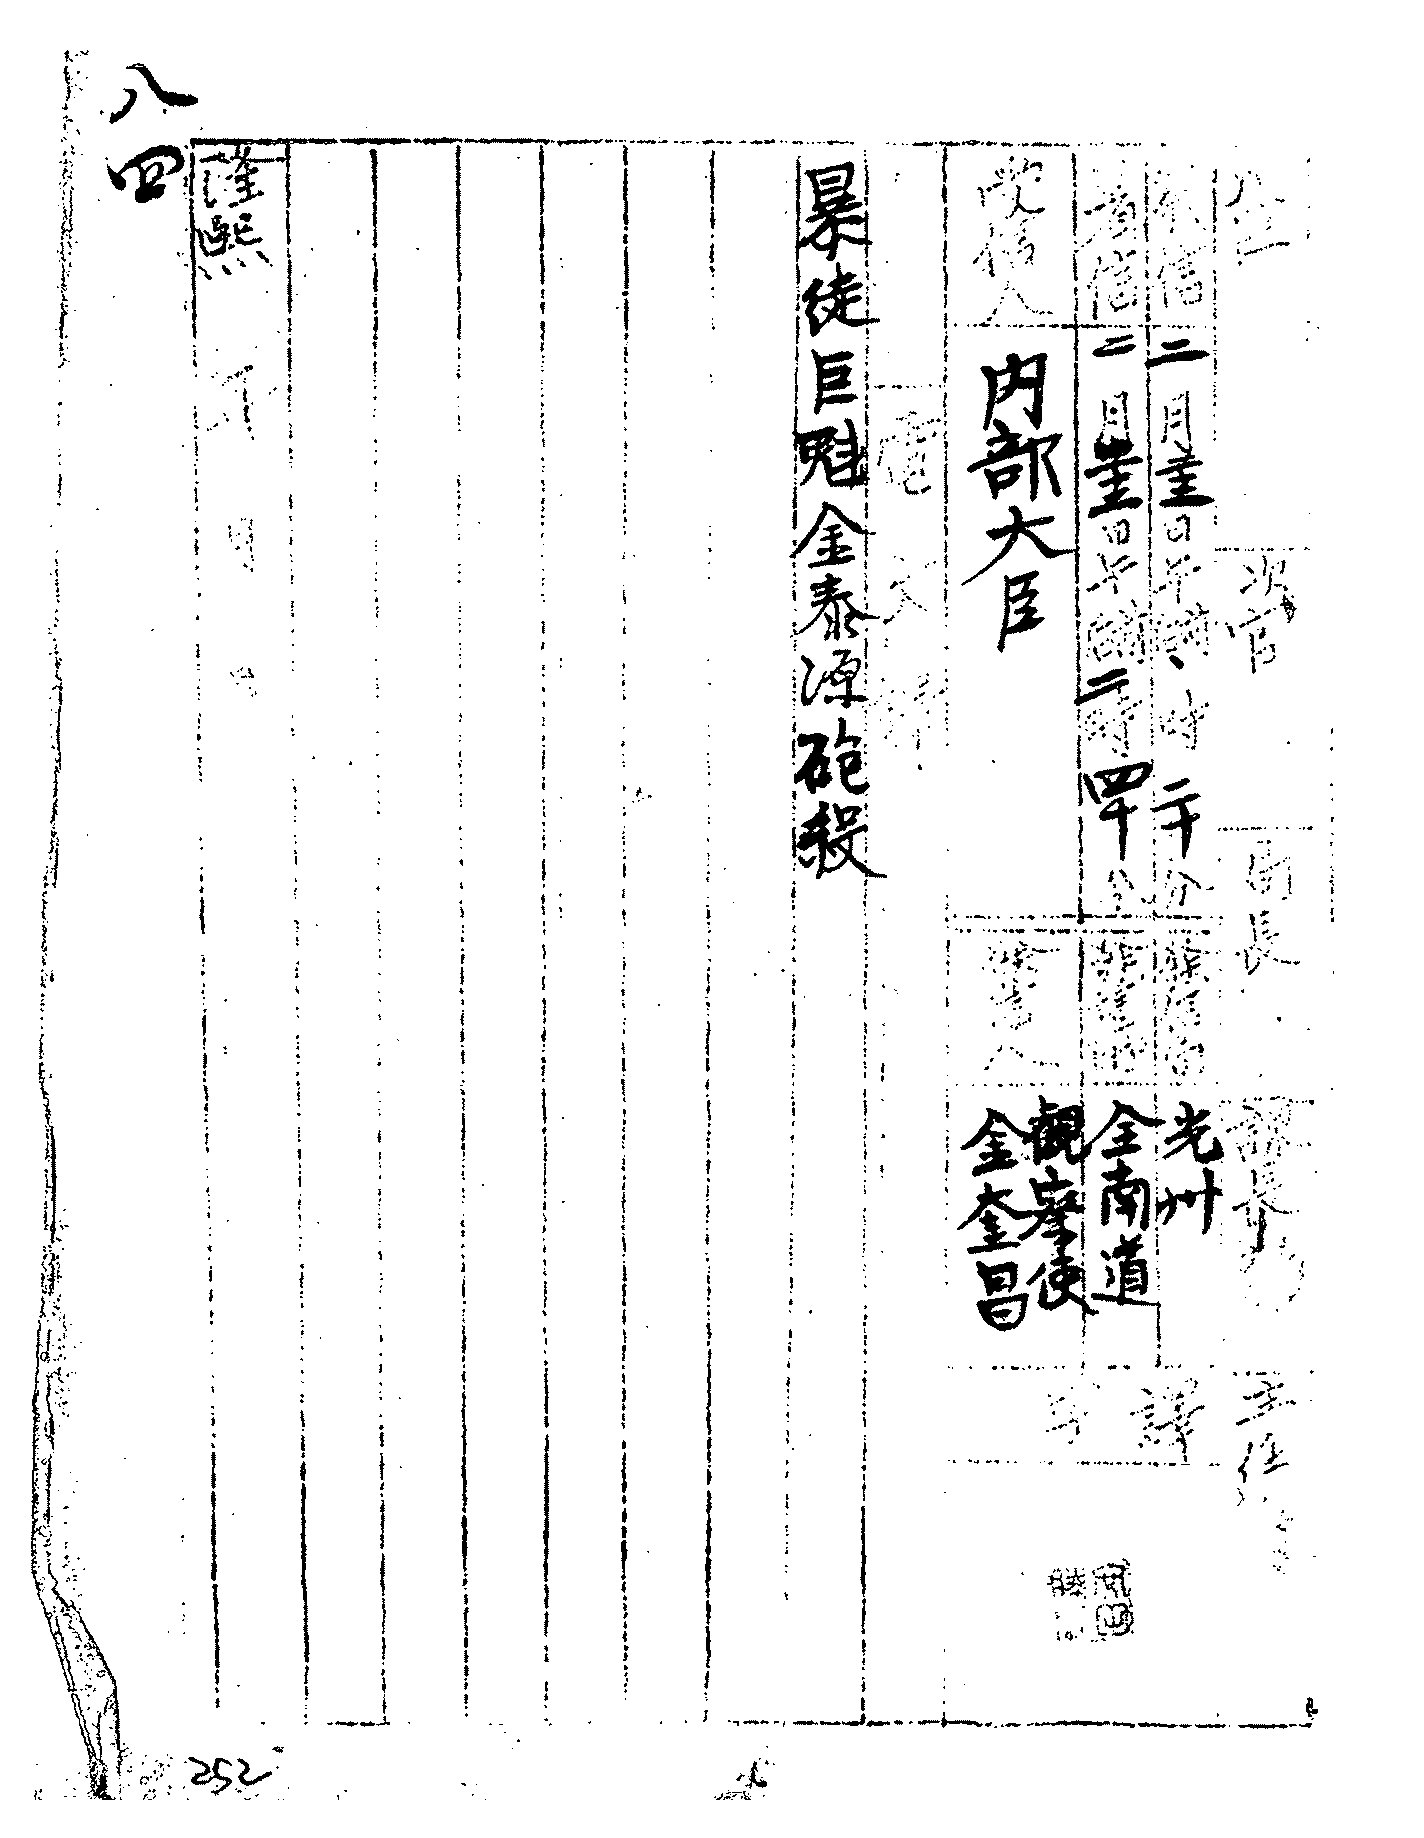 大臣
次官
局長
課長
主任
發信 二月圭日午前、時二十分 發信局 光州
着信 二月圭日午 二時四十分
全南道
觀察使
金奎昌
受信人 內部大臣 發信人
譯
電文譯
暴徒巨魁金泰源砲殺
隆熙 年 月 日
八四
252